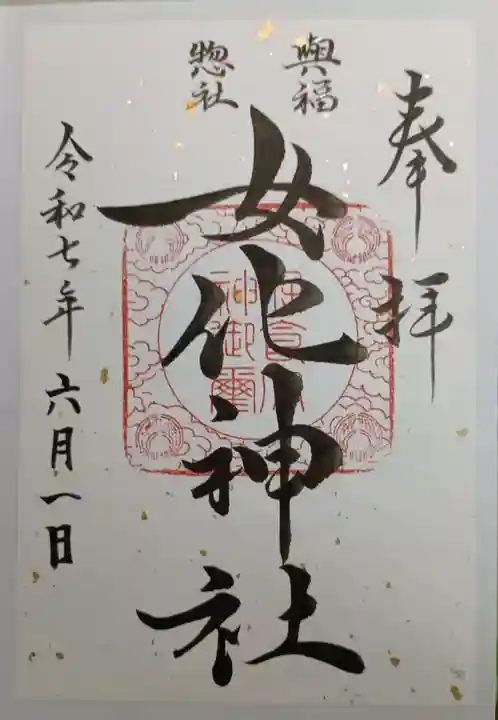 奉拝
與福
惣社
女化神社
令和七年六月一日